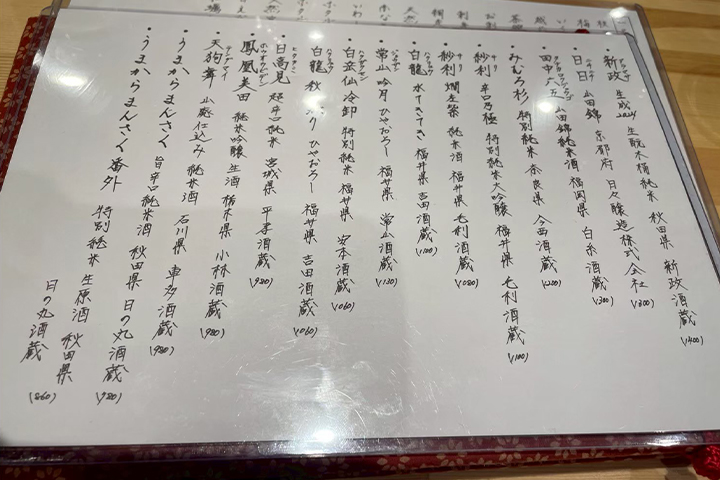 ・新政 生成2024 生酛木桶純米 秋田県 新政酒蔵 (1400)
・日日 山田錦 京都府 日々醸造株式会社 (1300)
・田中六五 山田錦純米酒 福岡県 白糸酒蔵 (1300)
・みむろ杉 特別純米 奈良県 今西酒蔵 (1200)
・紗利 辛口乃極 特別純米大吟醸 福井県 毛利酒蔵 (1100)
・紗利 燗左祭 純米酒 福井県 毛利酒蔵 (1080)
・白龍 氷すきてき 福井県 吉田酒蔵 (1200)
・常山 吟月 ひやおろし 福井県 常山酒蔵 (1130)
・白岳仙 冷卸 特別純米 福井県 安本酒蔵 (1060)
・白龍 秋 ひやおろし 福井県 吉田酒蔵 (1060)
・日高見 超辛口純米 宮城県 平孝酒蔵 (980)
・鳳凰美田 純米吟醸 生酒 栃木県 小林酒蔵
・天狗舞 山廃仕込み 純米酒 石川県 車多酒蔵 (980)
・うまからまんさく 旨辛口純米酒 秋田県 日の丸酒蔵 (980)
・うまからまんさく番外 特別純米 生原酒 秋田県
日の丸酒蔵 (860)